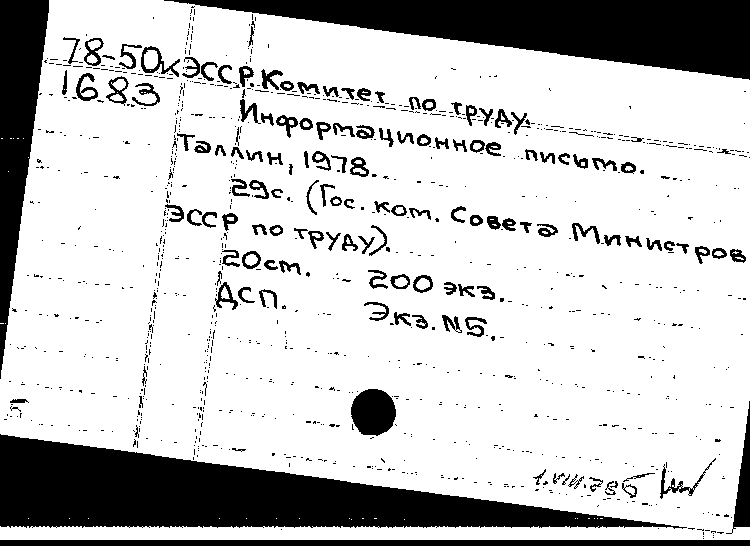 78-50к ЭССР. Комитет по труду.
1683
Информационное письмо.
Таллин, 1978.
29с. (Гос. ком. Совета Министров
ЭССР по труду).
20см. 200 экз.
ДСП. Экз. N5.
5
1.VIII.78б